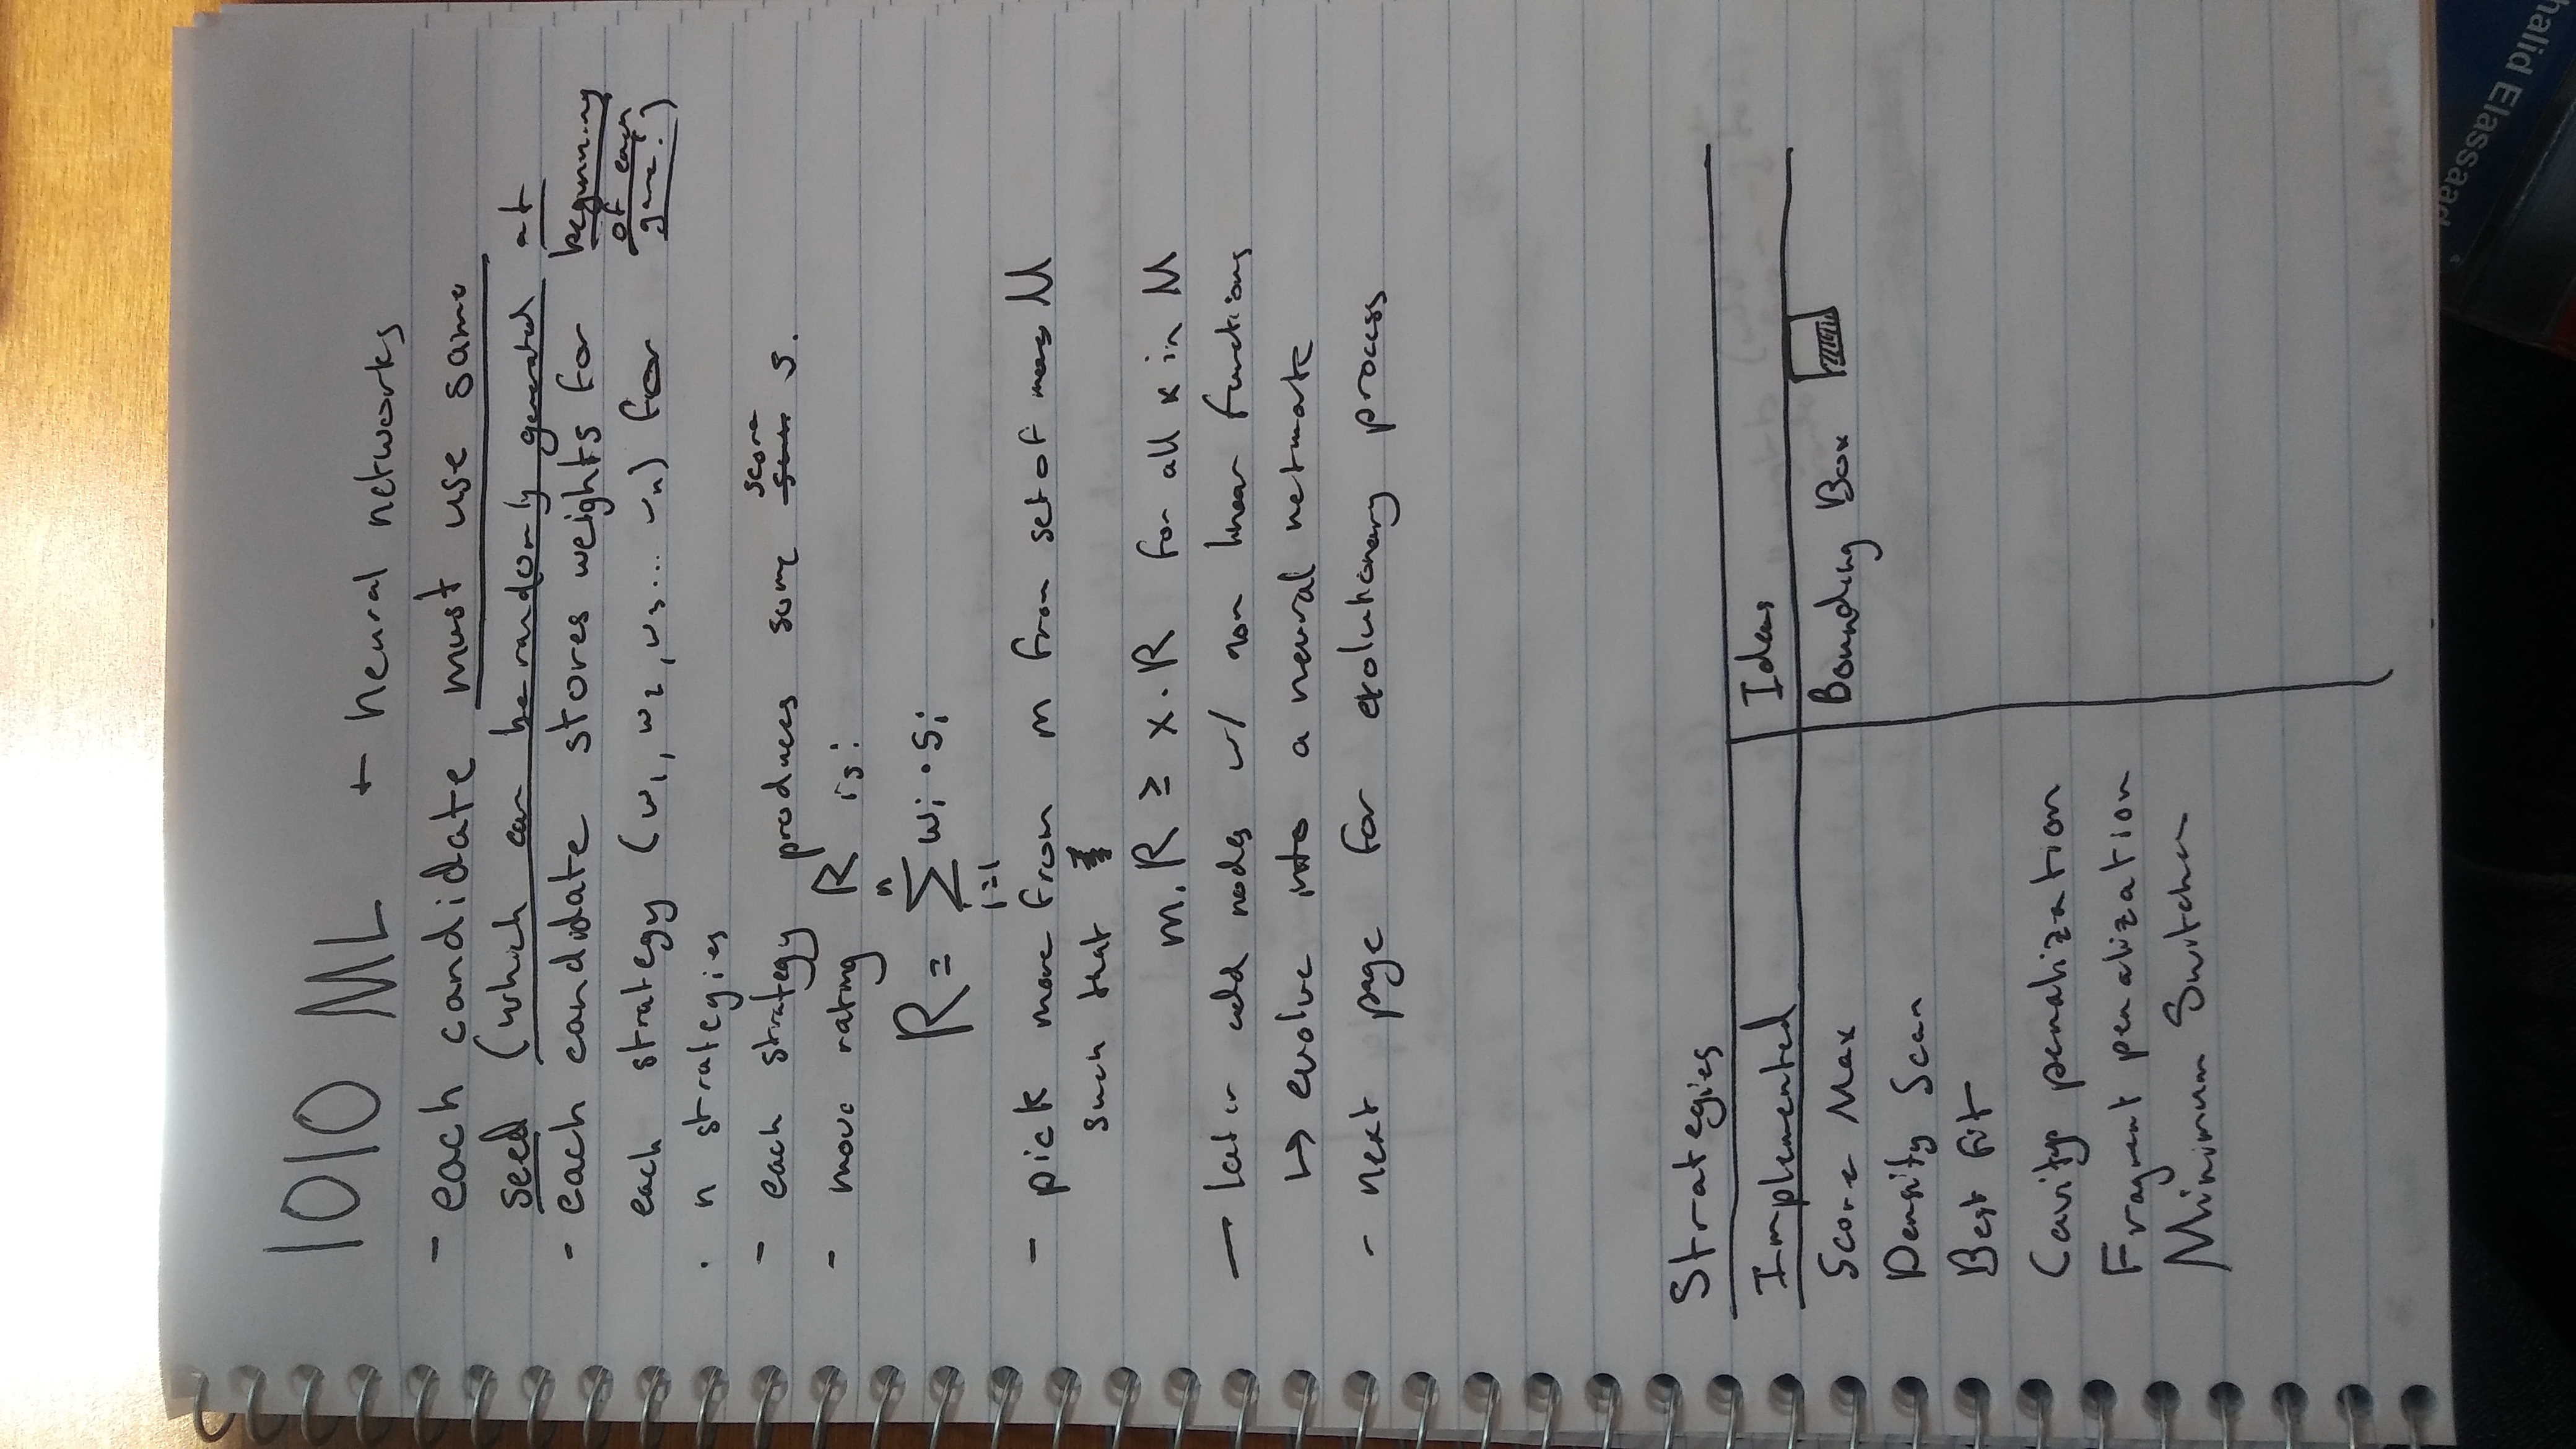 1010 ML + neural networks
- each candidate must use same
seed (which can be randomly generated at
beginning
of each
game!)
- each candidate stores weights for
each strategy (w1, w2, w3... wn) for
· n strategies
- each strategy produces some score s.
- move rating R is:
R = n∑i=1 wi · si
- pick move from m from set of moves M
such that
m.R ≥ x.R for all x in M
- Later add nodes w/ non linear functions
↳ evolve into a neural network
- next page for evolutionary process
Strategies
Implemented | Ideas
Score Max | Bounding Box
Density Scan
Best fit
Cavity penalization
Fragment penalization
Minimum Switches
halid Elassaad